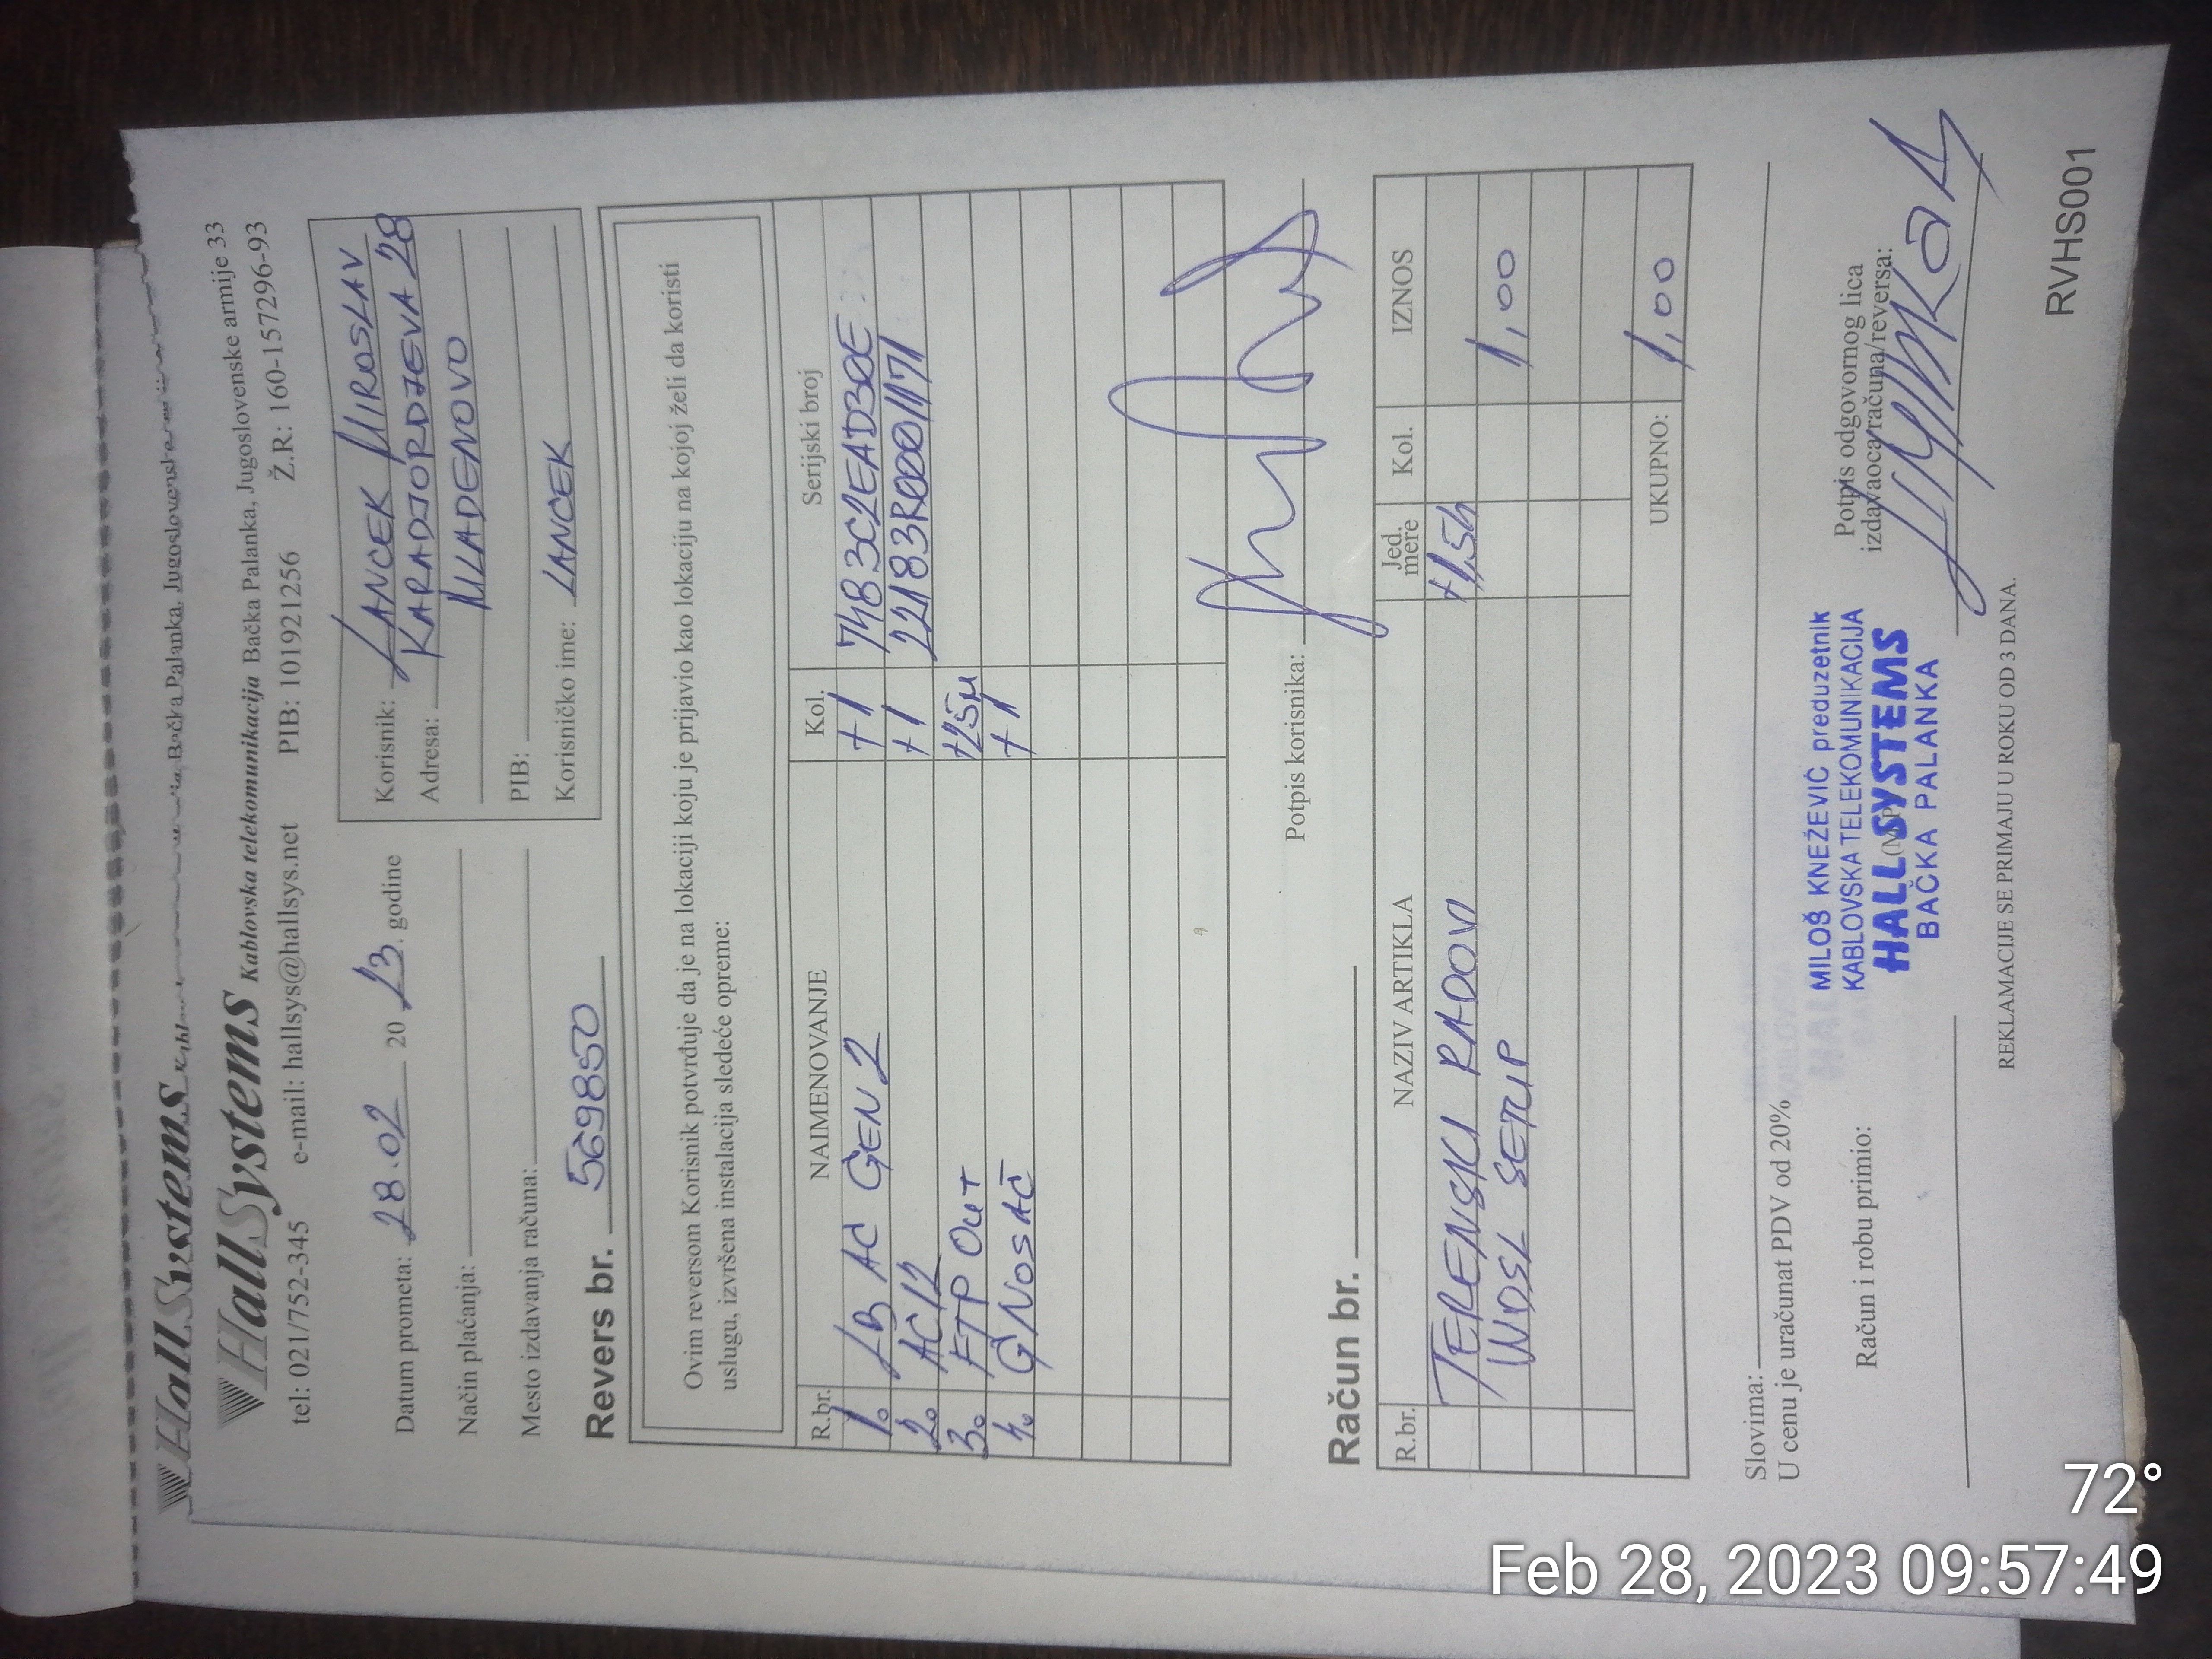 HallSystems
Bačka Palanka, Jugoslovenske
HallSystems Kablovska telekomunikacija Bačka Palanka, Jugoslovenske armije 33
tel: 021/752-345 e-mail: hallsys@hallsys.net PIB: 101921256 Ž.R: 160-157296-93
Datum prometa: 28.02 20 23. godine
Način plaćanja:
Mesto izdavanja računa:
Korisnik: LANCEK MIROSLAV
Adresa: KARADJORDJEVA 28
MLADENOVO
PIB:
Korisničko ime: LANCEK
Revers br. 569850
Ovim reversom Korisnik potvrđuje da je na lokaciji koju je prijavio kao lokaciju na kojoj želi da koristi
uslugu, izvršena instalacija sledeće opreme:
R.br. NAIMENOVANJE Kol. Serijski broj
1. LB AC GEN 2 +1 7483C2EAD30E
2. AC12 +1 22183R0001171
3. FTP Out +25m
4. G NOSAČ +1
Potpis korisnika:
Račun br.
R.br. NAZIV ARTIKLA Jed. mere Kol. IZNOS
TERENSKI RADOVI +1,5h
WDSL SETUP 1,00
UKUPNO: 1,00
Slovima:
U cenu je uračunat PDV od 20%
Račun i robu primio:
(M.P.)
MILOŠ KNEŽEVIĆ preduzetnik
KABLOVSKA TELEKOMUNIKACIJA
HALLSYSTEMS
BAČKA PALANKA
Potpis odgovornog lica
izdavaoca računa/reversa:
REKLAMACIJE SE PRIMAJU U ROKU OD 3 DANA.
RVHS001
72°
Feb 28, 2023 09:57:49